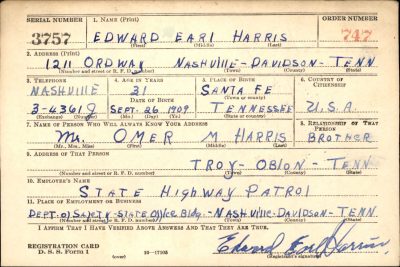 SERIAL NUMBER 1. NAME (Print) ORDER NUMBER
3757 EDWARD EARL HARRIS 747
(First) (Middle) (Last)
2. ADDRESS (Print)
1211 ORDWAY NASHVILLE-DAVIDSON-TENN
(Number and street or R. F. D. number) (Town) (County) (State)
3. TELEPHONE 4. AGE IN YEARS 5. PLACE OF BIRTH 6. COUNTRY OF CITIZENSHIP
NASHVILLE 31 SANTA FE
DATE OF BIRTH (Town or county)
3-4361J SEPT. 26 1909 TENNESSEE U.S.A.
(Exchange) (Number) (Mo.) (Day) (Yr.) (State or country)
7. NAME OF PERSON WHO WILL ALWAYS KNOW YOUR ADDRESS 8. RELATIONSHIP OF THAT PERSON
Mr. OMER M HARRIS BROTHER
(Mr., Mrs., Miss) (First) (Middle) (Last)
9. ADDRESS OF THAT PERSON
TROY-OBION-TENN
(Number and street or R. F. D. number) (Town) (County) (State)
10. EMPLOYER'S NAME
STATE HIGHWAY PATROL
11. PLACE OF EMPLOYMENT OR BUSINESS
DEPT. of SAFETY-STATE Office Bldg.-NASHVILLE-DAVIDSON-TENN.
(Number and street or R. F. D. number) (Town) (County) (State)
I AFFIRM THAT I HAVE VERIFIED ABOVE ANSWERS AND THAT THEY ARE TRUE.
REGISTRATION CARD Edward Earl Harris
D. S. S. Form 1 16-17105 (Registrant's signature)